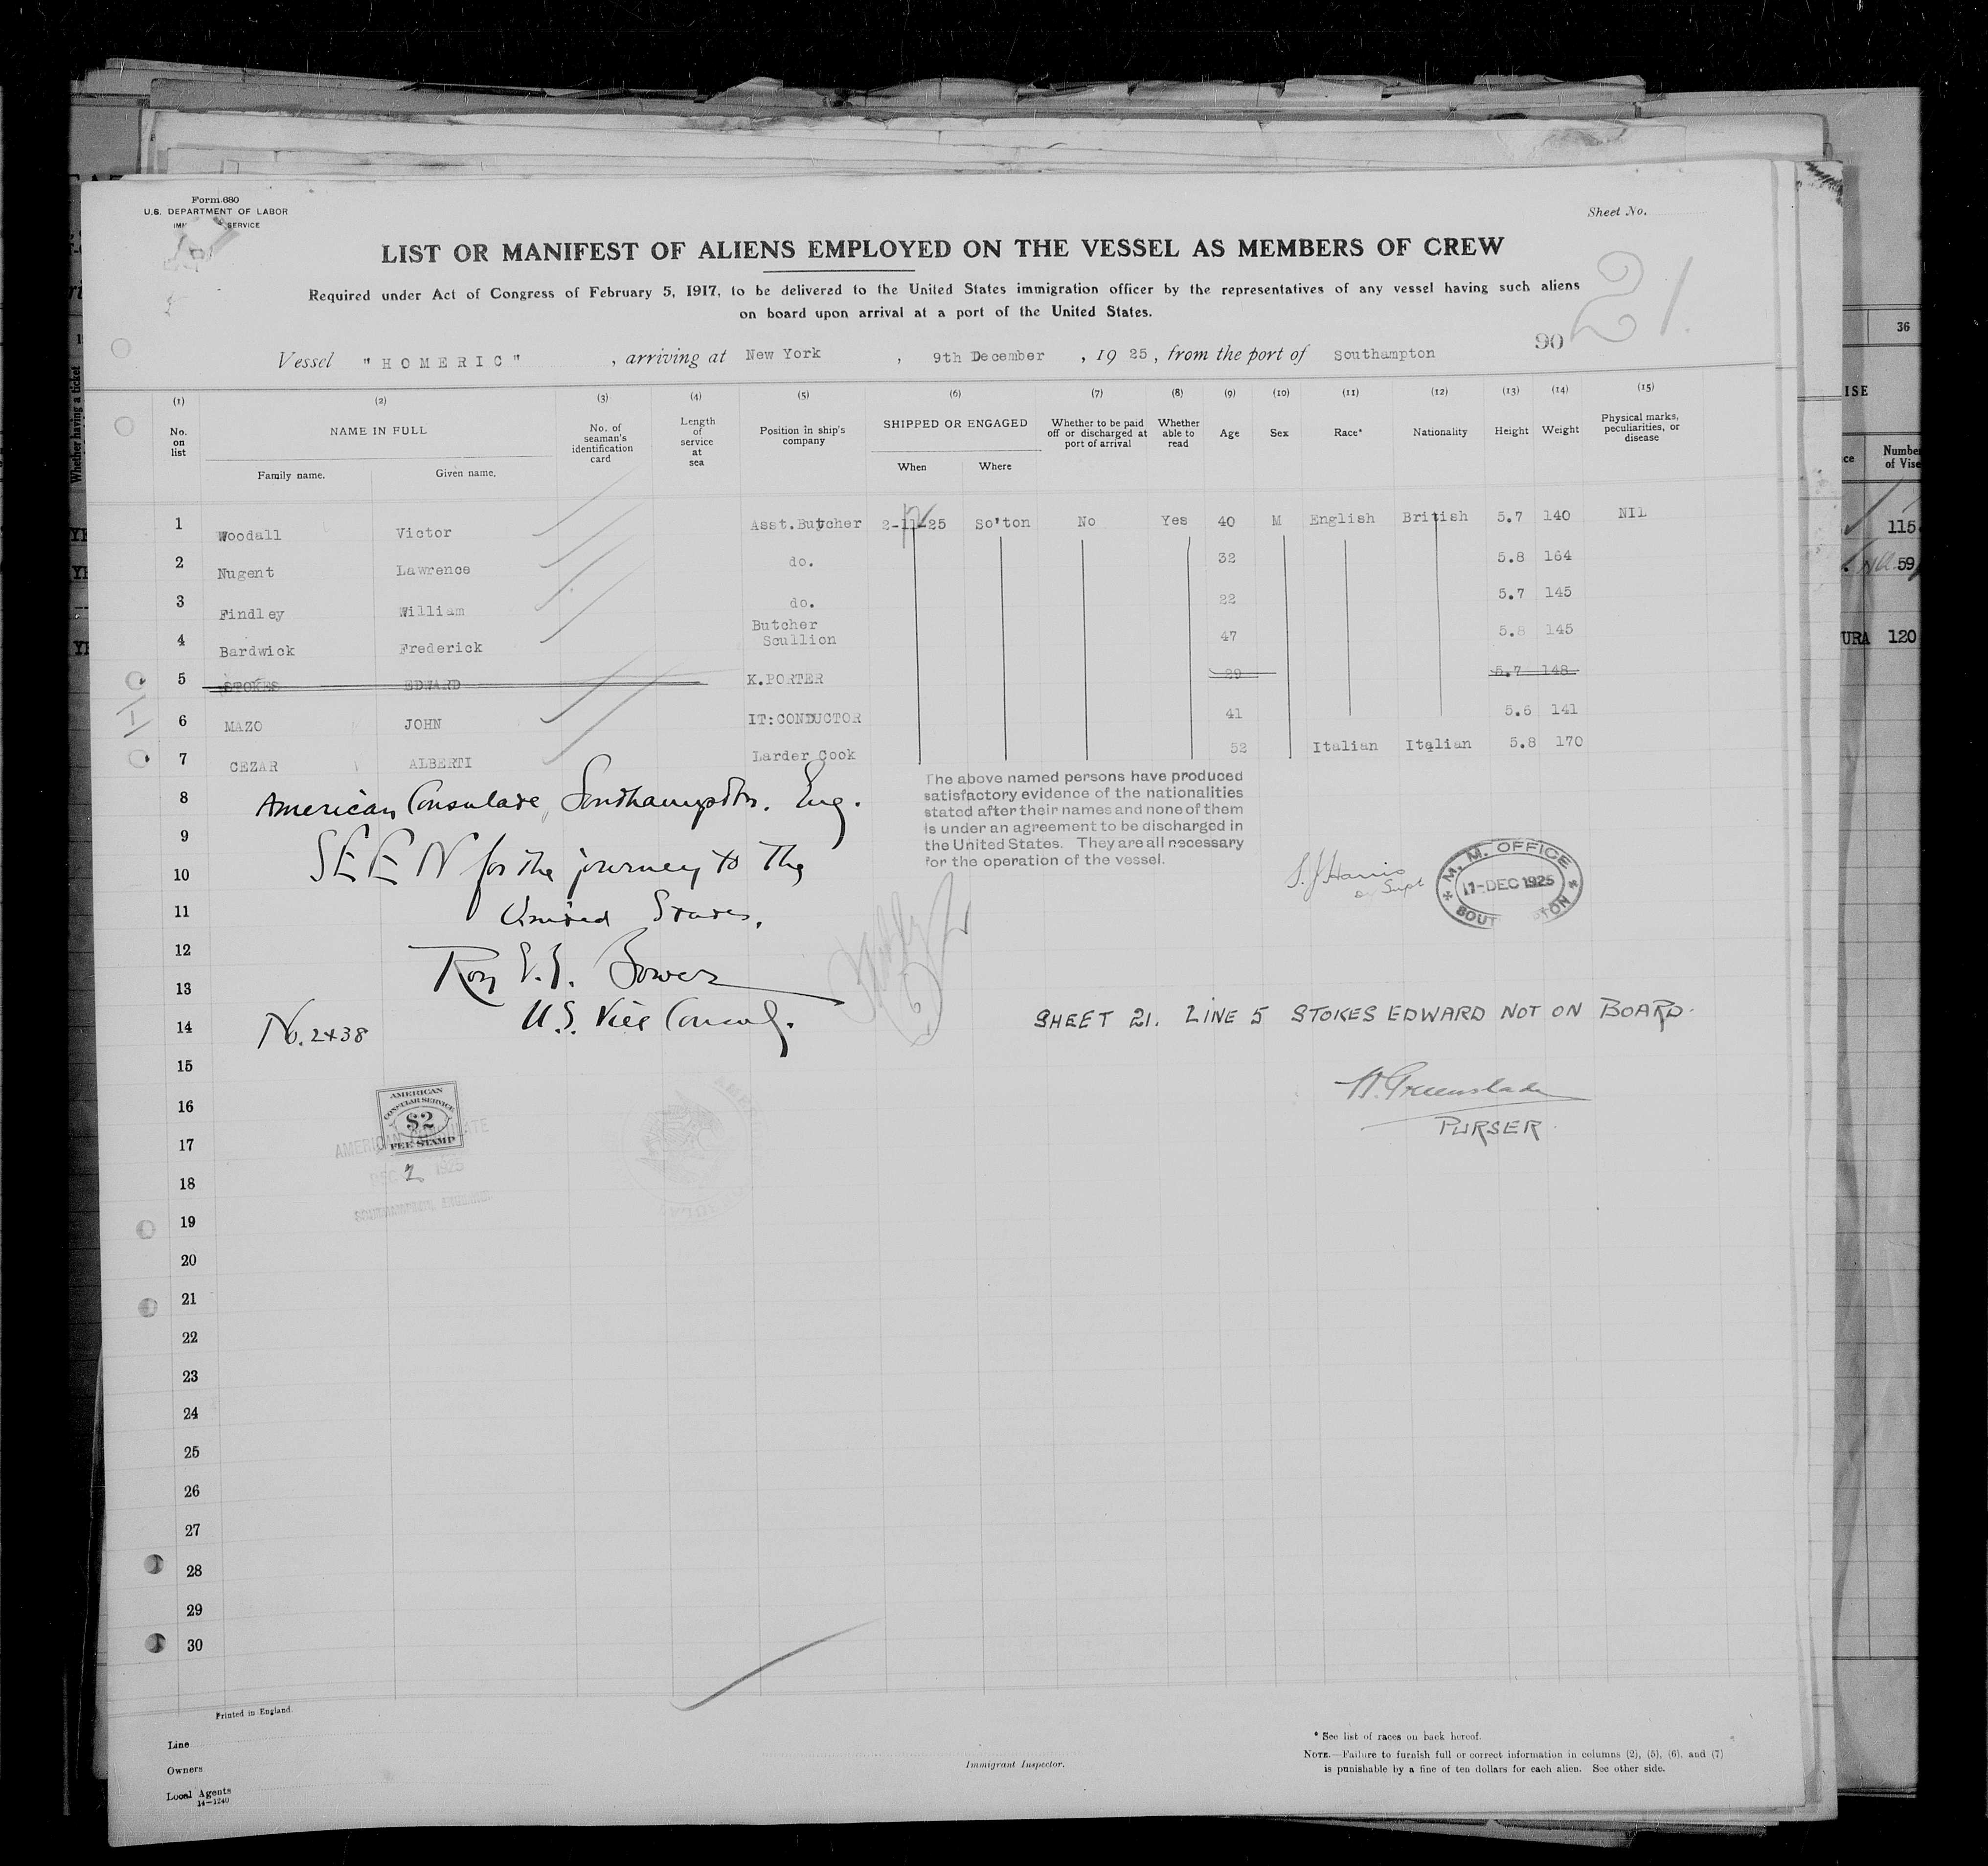 Form 680
U.S. DEPARTMENT OF LABOR
SERVICE
Sheet No.
LIST OR MANIFEST OF ALIENS EMPLOYED ON THE VESSEL AS MEMBERS OF CREW
21
Required under Act of Congress of February 5, 1917, to be delivered to the United States immigration officer by the representatives of any vessel having such aliens
on board upon arrival at a port of the United States.
90
Vessel "HOMERIC", arriving at New York, 9th December, 1925, from the port of Southampton
(1) (2) (3) (4) (5) (6) (7) (8) (9) (10) (11) (12) (13) (14) (15)
No. on list NAME IN FULL Family name. Given name. No. of seaman's identification card Length of service at sea Position in ship's company SHIPPED OR ENGAGED When Where Whether to be paid off or discharged at port of arrival Whether able to read Age Sex Race* Nationality Height Weight Physical marks, peculiarities, or disease
1 Woodall Victor Asst.Butcher 2-11-25 So'ton No Yes 40 M English British 5.7 140 NIL
2 Nugent Lawrence do. 32 5.8 164
3 Findley William do. 22 5.7 145
4 Bardwick Frederick Butcher Scullion 47 5.8 145
5 STOKES EDWARD K.PORTER 29 5.7 148
6 MAZO JOHN IT:CONDUCTOR 41 5.6 141
7 CEZAR ALBERTI Larder Cook 52 Italian Italian 5.8 170
8 American Consulate, Southampton. Eng.
The above named persons have produced
satisfactory evidence of the nationalities
stated after their names and none of them
is under an agreement to be discharged in
the United States. They are all necessary
for the operation of the vessel.
9
10 SEEN for the journey to the
S.J Harris
Supt
M. M. OFFICE
1-DEC 1925
11 United States.
12
13 Roy E.S. Bower
14 No. 2438 U.S. Vice Consul.
SHEET 21. LINE 5 STOKES EDWARD NOT ON BOARD.
15
H. Greenslade
16
PURSER
AMERICAN
CONSULAR SERVICE
$2
FEE STAMP
17
AMERICAN CONSULATE
DEC 2 1925
SOUTHAMPTON, ENGLAND
18
19
20
21
22
23
24
25
26
27
28
29
30
Printed in England.
Line
Owners
Local Agents
14—1240
Immigrant Inspector.
* See list of races on back hereof.
NOTE.—Failure to furnish full or correct information in columns (2), (5), (6), and (7)
is punishable by a fine of ten dollars for each alien. See other side.
36
Number
of Vise
115
59
URA 120
Whether having a ticket